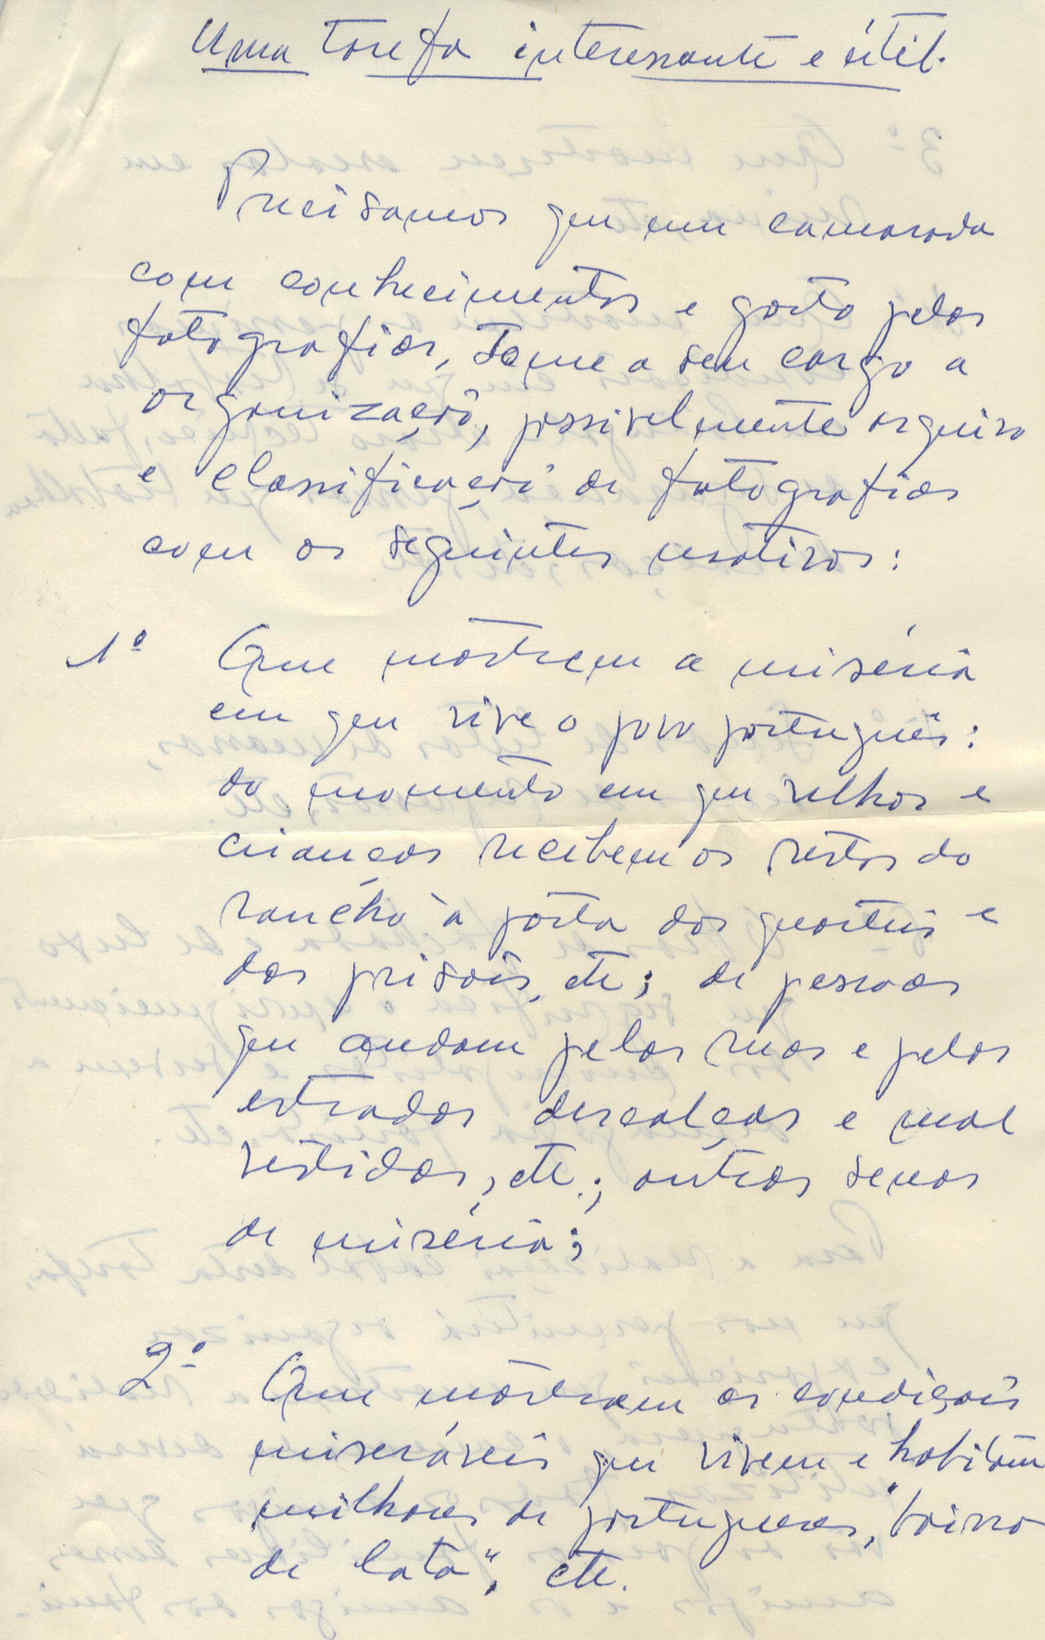 Uma tarefa interessante e útil.
Precisamos que um camarada
com conhecimentos e gosto pelas
fotografias, tome a seu cargo a
organização, possivelmente arquivo
e classificação de fotografias
com os seguintes motivos:
1º Que mostrem a miséria
em que vive o povo português:
do momento em que velhos e
crianças recebem os restos do
rancho à porta dos quarteis e
das prisões, etc; de pessoas
que andam pelas ruas e pelas
estradas descalças e mal
vestidas, etc.; outras senas
de miséria;
2º Que mostrem as condições
miseráveis que vivem e habitam
milhares de portugueses, "bairro
de lata", etc.